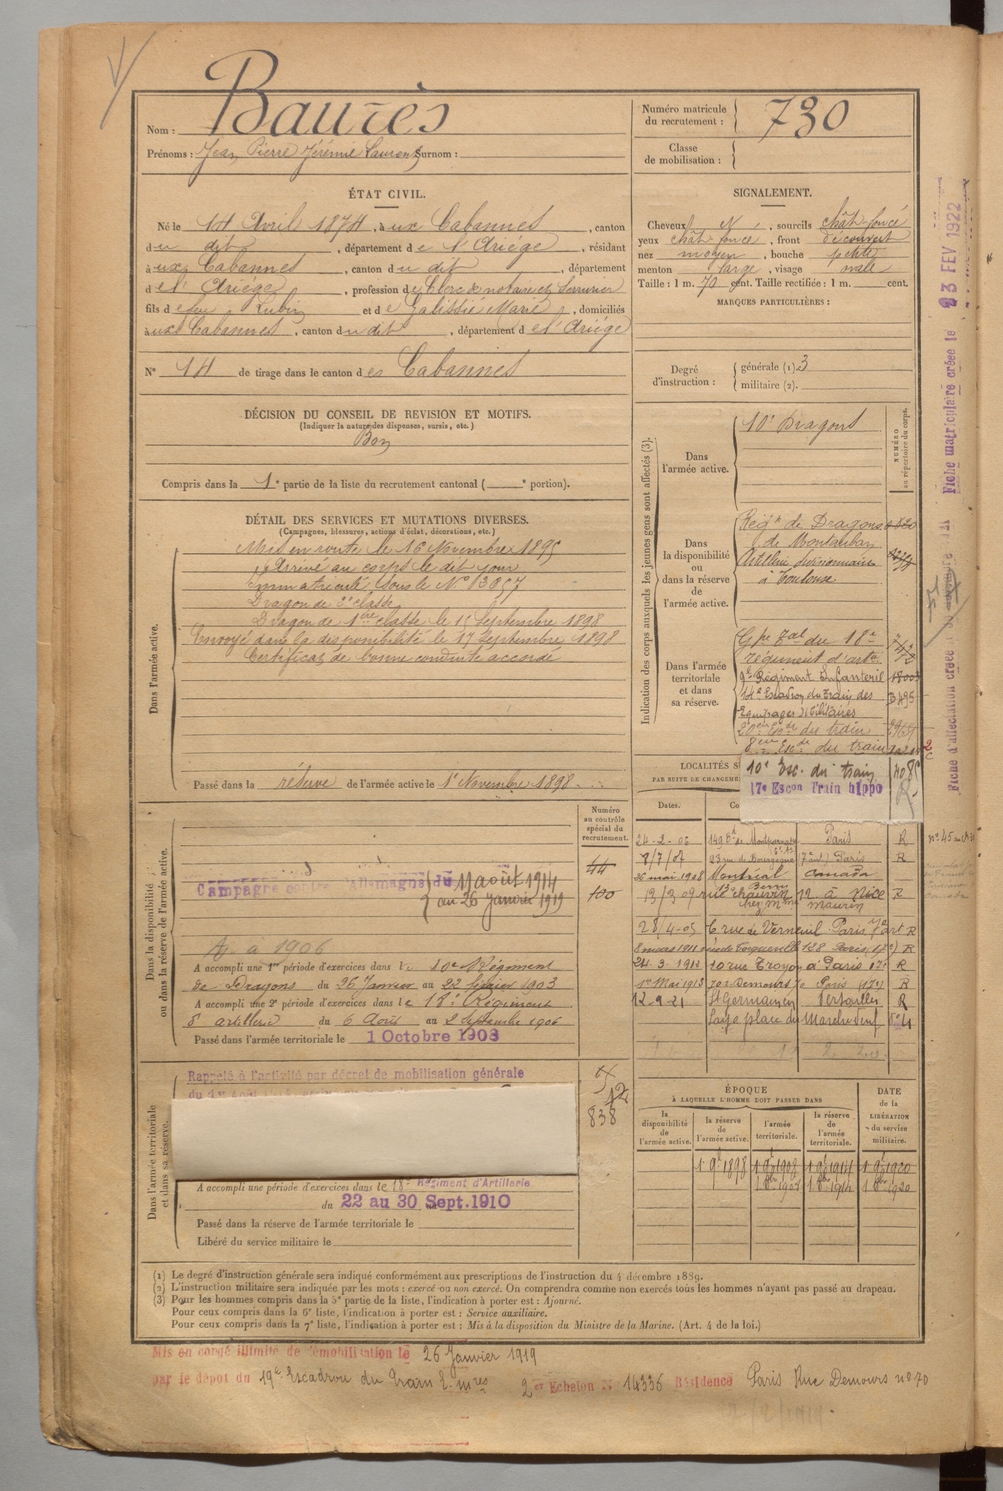 Baurès
Nom :
Prénoms : Jean Pierre Jérémie Laurent Surnom :
Numéro matricule du recrutement : 730
Classe de mobilisation :
ÉTAT CIVIL.
Né le 14 Avril 1874, à ux Cabannes, canton
du dit, département de l'Ariège, résidant
à ux Cabannes, canton du dit, département
de l'Ariège, profession de Clerc de notaire et Serrurier
fils de feu Lubin et de Galissié Marie, domiciliés
à ux Cabannes, canton du dit, département de l'Ariège
N° 14 de tirage dans le canton des Cabannes
SIGNALEMENT.
Cheveux N, sourcils chât foncé
yeux chât foncé, front découvert
nez moyen, bouche petite
menton large, visage ovale
Taille : 1 m. 70 cent. Taille rectifiée : 1 m. cent.
MARQUES PARTICULIÈRES :
Degré d'instruction :
générale (1) 3
militaire (2).
DÉCISION DU CONSEIL DE REVISION ET MOTIFS.
(Indiquer la nature des dispenses, sursis, etc.)
Bon
Compris dans la 1e partie de la liste du recrutement cantonal ( e portion).
DÉTAIL DES SERVICES ET MUTATIONS DIVERSES.
(Campagnes, blessures, actions d'éclat, décorations, etc.)
Dans l'armée active.
Mis en route le 16 Novembre 1895
Arrivé au corps le dit jour
Immatriculé sous le N° 13057
Dragon de 2e classe
Dragon de 1ère classe le 15 Septembre 1898
Envoyé dans la disponibilité le 17 Septembre 1898
Certificat de bonne conduite accordé
Passé dans la réserve de l'armée active le 1er Novembre 1898
Indication des corps auxquels les jeunes gens sont affectés (3).
NUMÉRO au répertoire du corps.
Dans l'armée active.
10e Dragons
Dans la disponibilité ou dans la réserve de l'armée active.
Régt de Dragons
de Montauban
Artillerie
à Toulouse
Dans l'armée territoriale et dans sa réserve.
Gpe du 18e
régiment d'artie
9e Régiment Infanterie
14e Escadron du Train des
Equipages Militaires
20ème Eon du train
8ème Eon du train
10e Esc. du train
17e Escon Train hippo
Dans la disponibilité ou dans la réserve de l'armée active.
Numéro au contrôle spécial du recrutement.
44
100
Campagne contre l'Allemagne du 11 août 1914
au 26 Janvier 1919
A. a 1906
A accompli une 1re période d'exercices dans le 10e Régiment
de Dragons du 26 Janvier au 22 février 1903
A accompli une 2e période d'exercices dans le 18e Régiment
d'artillerie du 6 Août au 2 Septembre 1906
Passé dans l'armée territoriale le 1 Octobre 1908
LOCALITÉS
PAR SUITE DE CHANGEME
Dates.
24-2-06 149 Bd de Montparnasse Paris R
8/7/07 23 rue de Bourgogne Paris R
26 mai 1908 Montréal Canada
13/3 09 rue chauvin 12 à Nice R
chez Mme Maurin
28/4-09 6 rue de Verneuil Paris 7e art R
8 mars 1911 rue de Tocqueville 128 Paris (17e) R
24-3-1912 10 rue Troyon à Paris 17e R
1er Mai 1913 70 r Demours Paris (17e) R
12-9-21 St Germain en Versailles R
Laye place du Marché Neuf
Dans l'armée territoriale et dans sa réserve.
Rappelé à l'activité par décret de mobilisation générale
12
838
A accompli une période d'exercices dans le 18e Régiment d'Artillerie
du 22 au 30 Sept. 1910
Passé dans la réserve de l'armée territoriale le
Libéré du service militaire le
ÉPOQUE
À LAQUELLE L'HOMME DOIT PASSER DANS
DATE de la LIBÉRATION du service militaire.
la disponibilité de l'armée active.
la réserve de l'armée active.
l'armée territoriale.
la réserve de l'armée territoriale.
1 9bre 1898 1 9bre 1908 1 9bre 1914 1 9bre 1920
1 8bre 1908 1 8bre 1914 1 8bre 1920
(1) Le degré d'instruction générale sera indiqué conformément aux prescriptions de l'instruction du 4 décembre 1889.
(2) L'instruction militaire sera indiquée par les mots : exercé ou non exercé. On comprendra comme non exercés tous les hommes n'ayant pas passé au drapeau.
(3) Pour les hommes compris dans la 5e partie de la liste, l'indication à porter est : Ajourné.
Pour ceux compris dans la 6e liste, l'indication à porter est : Service auxiliaire.
Pour ceux compris dans la 7e liste, l'indication à porter est : Mis à la disposition du Ministre de la Marine. (Art. 4 de la loi.)
Mis en congé illimité de démobilisation le 26 Janvier 1919
par le dépôt du 19e Escadron du Train E. mres 2e Echelon N° 14336 Résidence Paris Rue Demours n° 70
Fiche matriculaire créée le 23 FEV 1922
Fiche d'affectation créée